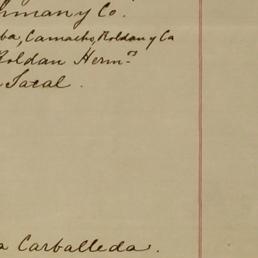 hman y Co.
ba, Camacho, Roldan y Ca
Roldan Hermos
Sacal.
a Carballeda.